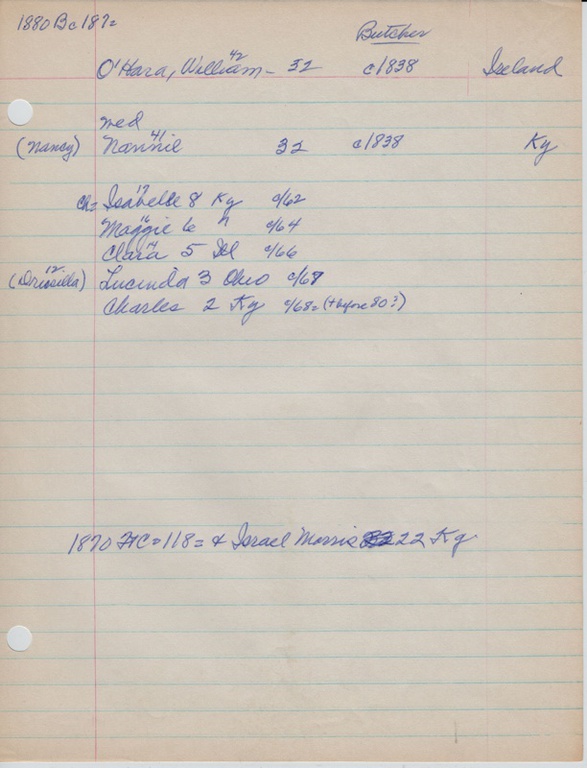 1880 Bc 187=
Butcher
42
O'Hara, William - 32 c1838 Ireland
med
41
(Nancy) Nannie 32 c1838 Ky
17
Ch= Isabelle 8 Ky c/62
16
Maggie 6 " c/64
14
Clara 5 Ill c/66
12
(Drusilla) Lucinda 3 Ohio c/67
Charles 2 Ky c/68= (+before 80?)
1870 FC=118= + Israel Morris 22 Ky